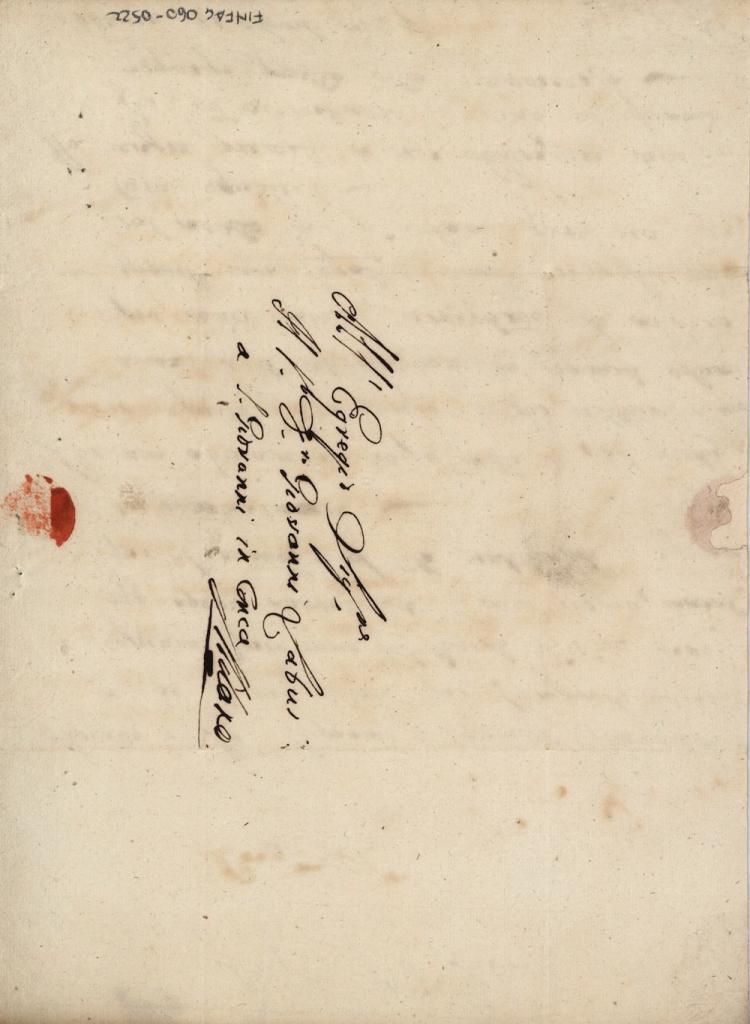 FINFAG 060-0522
All' Egregio Sig.re
Il Sig.r Giovanni Labus
a S. Giovanni in Conca
Milano